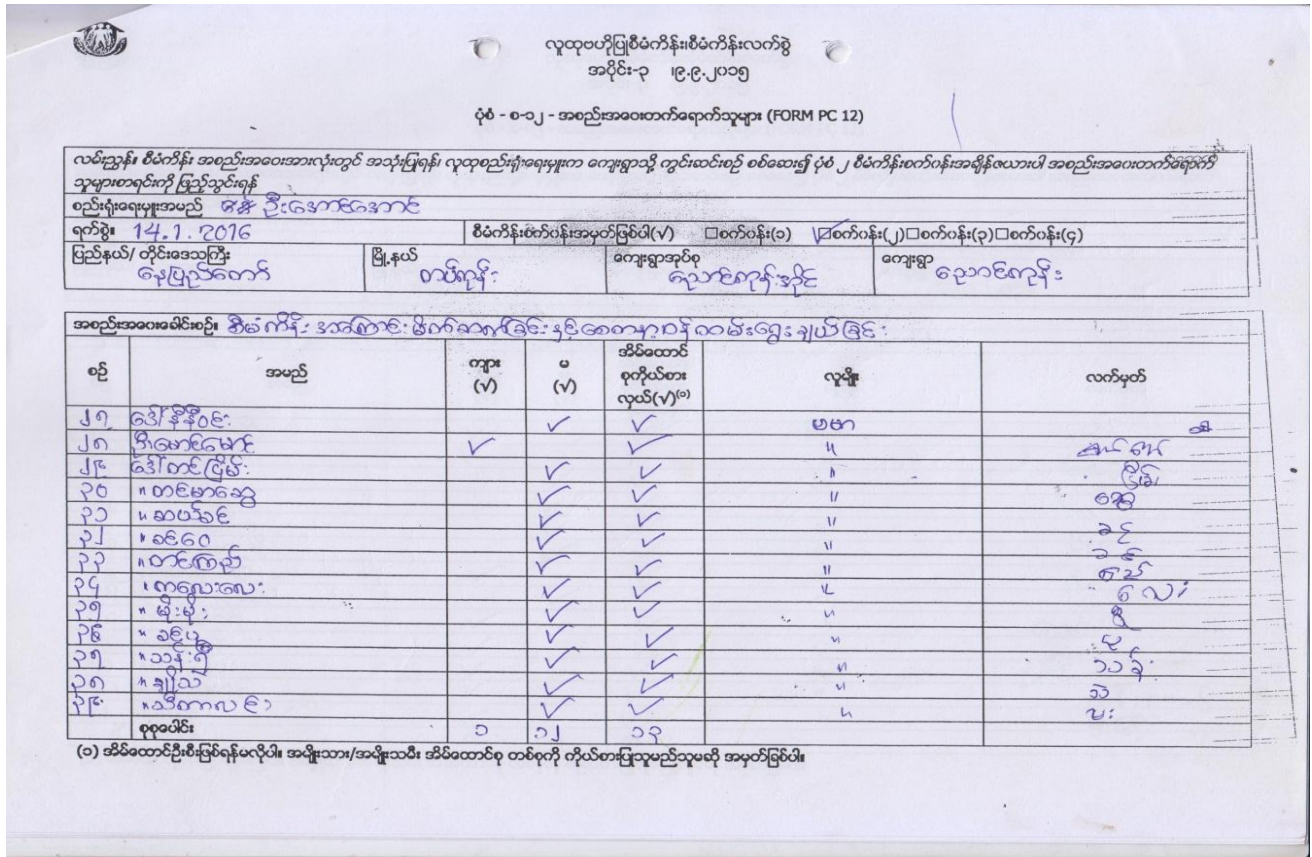 လူထုဗဟိုပြုစီမံကိန်း၊စီမံကိန်းလက်စွဲ
အပိုင်း-၃ ၊၉.၉.၂၀၁၅
ပုံစံ - စ-၁၂ - အစည်းအဝေးတက်ရောက်သူများ (FORM PC 12)
လမ်းညွှန်။ စီမံကိန်း အစည်းအဝေးအားလုံးတွင် အသုံးပြုရန်၊ လူထုစည်းရုံးရေးမှူးက ကျေးရွာသို့ ကွင်းဆင်းစဉ် စစ်ဆေး၍ ပုံစံ ၂ စီမံကိန်းစက်ဝန်းအချိန်ဇယားပါ အစည်းအဝေးတက်ရောက်
သူများစာရင်းကို ဖြည့်သွင်းရန်
စည်းရုံးရေးမှူးအမည် ဦးအောင်အောင်
ရက်စွဲ။ 14.1.2016 စီမံကိန်းစက်ဝန်းအမှတ်ဖြစ်ပါ(√) □စက်ဝန်း(၁) ☑စက်ဝန်း(၂)□စက်ဝန်း(၃)□စက်ဝန်း(၄)
ပြည်နယ်/ တိုင်းဒေသကြီး မြို့နယ် ကျေးရွာအုပ်စု ကျေးရွာ
နေပြည်တော် တပ်ကုန်း ညောင်ကုန်းအိုင် ညောင်ကုန်း
အစည်းအဝေးခေါင်းစဉ်။ စီမံကိန်းအကြောင်းမိတ်ဆက်ခြင်းနှင့်စေတနာ့ဝန်ထမ်းရွေးချယ်ခြင်း
စဉ် အမည် ကျား (√) မ (√) အိမ်ထောင်စုကိုယ်စားလှယ်(√)⁽¹⁾ လူမျိုး လက်မှတ်
၂၇ ဒေါ်နီနီဝင်း ✓ ✓ ဗမာ
၂၈ ဦးမောင်မောင် ✓ ✓ "
၂၉ ဒေါ်တင်ငြိမ်း ✓ ✓ " ငြိမ်း
၃၀ " တင်မာဆွေ ✓ ✓ " ဆွေ
၃၁ " ဆယ်ခင် ✓ ✓ " ခင်
၃၂ " ခင်ဝေ ✓ ✓ " ခင်
၃၃ " တင်ကြည် ✓ ✓ " ကြည်
၃၄ " ကလေးလေး ✓ ✓ " လေး
၃၅ " မိုးမိုး ✓ ✓ " မိုး
၃၆ " ခင်ပု ✓ ✓ " ပု
၃၇ " သန်းရီ ✓ ✓ " သန်း
၃၈ " ချိုသဲ ✓ ✓ " သဲ
၃၉ " သီတာလင်း ✓ ✓ "
စုစုပေါင်း ၁ ၁၂ ၁၃
(၁) အိမ်ထောင်ဦးစီးဖြစ်ရန်မလိုပါ။ အမျိုးသား/အမျိုးသမီး အိမ်ထောင်စု တစ်စုကို ကိုယ်စားပြုသူမည်သူမဆို အမှတ်ခြစ်ပါ။